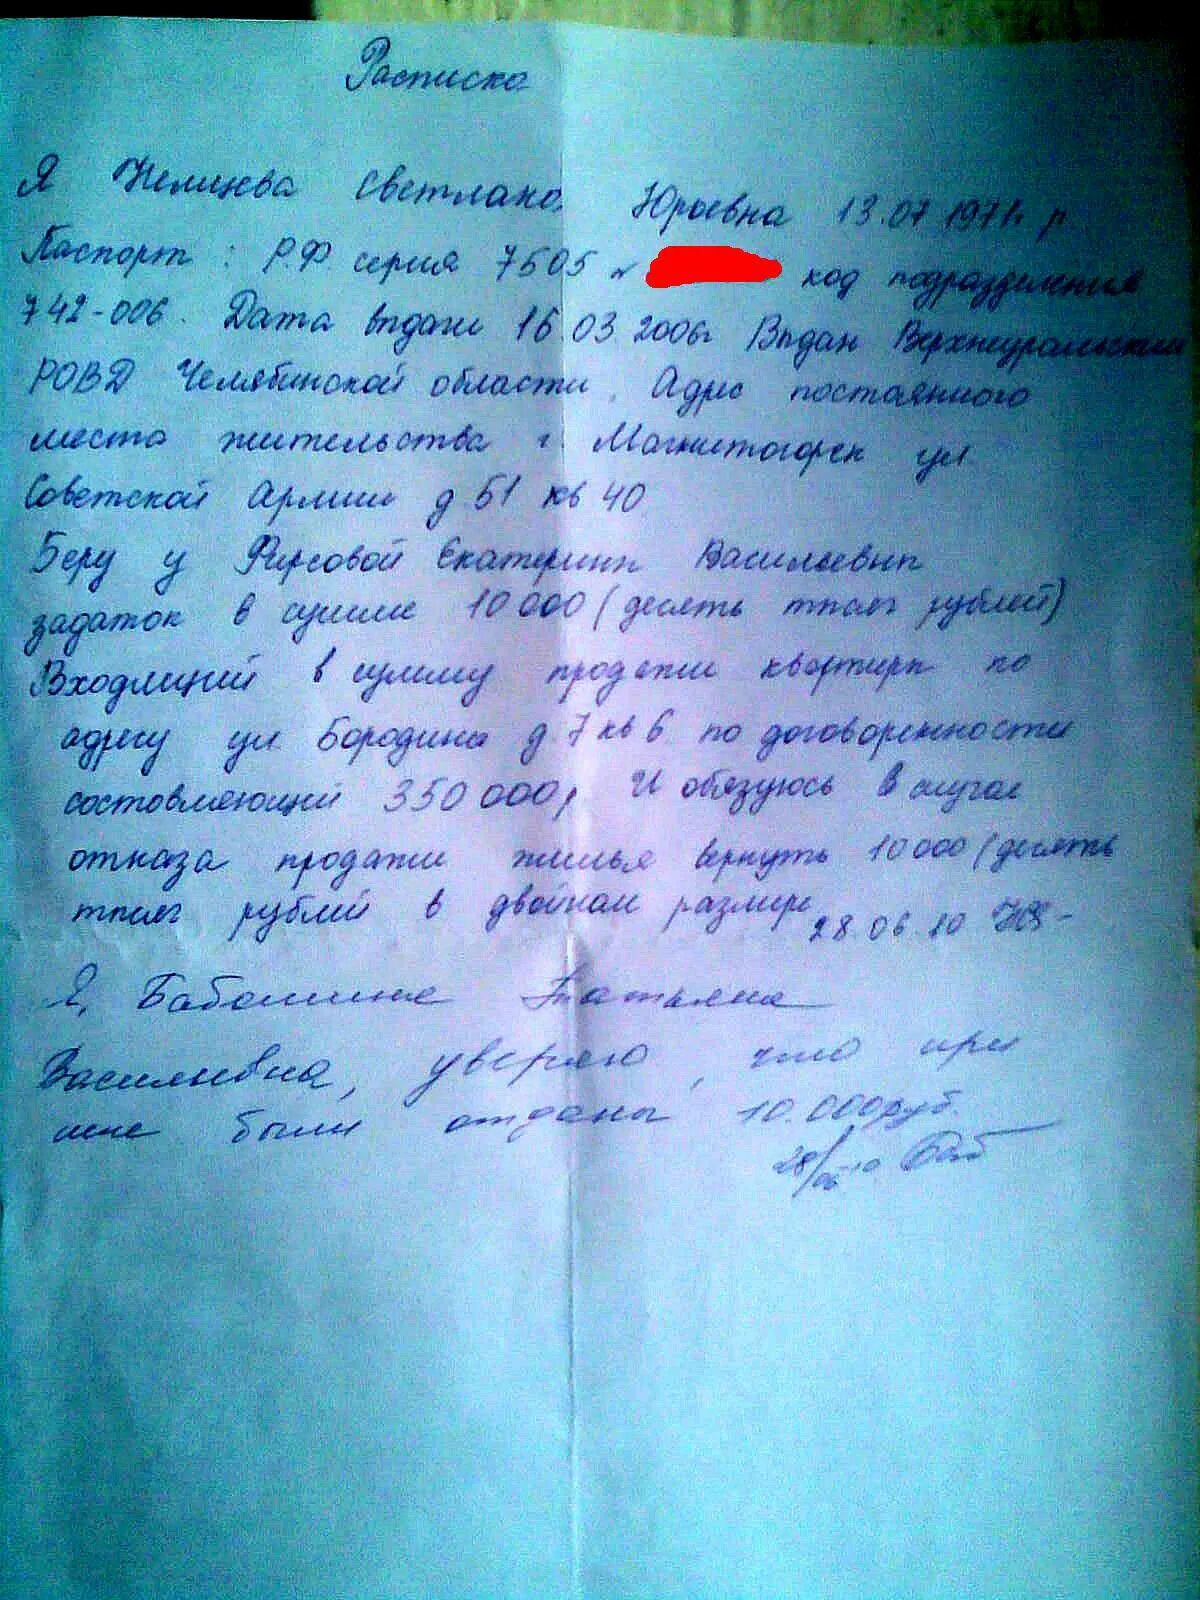 Расписка
Я Светлана Юрьевна 13.07 1971г р
Паспорт: Р.Ф. серия 7505 № код подразделения
742-006. Дата выдачи 16.03.2006г Выдан Верхнеуральским
РОВД Челябинской области. Адрес постоянного
места жительства г. Магнитогорск ул.
Советской Армии д 51 кв 40
Беру у Фирсовой Екатерины Васильевны
задаток в сумме 10 000 (десять тысяч рублей)
Входящий в сумму продажи квартиры по
адресу ул. Бородина д. 7 кв 6. по договоренности
состовляющий 350 000р И обязуюсь в случае
отказа продажи жилья вернуть 10 000 (десять
тысяч рублей в двойном размере 28.06.10
Я, Татьяна
Васильевна, уверяю, что при
мне были отданы 10.000 руб.
28/06-10 Баб